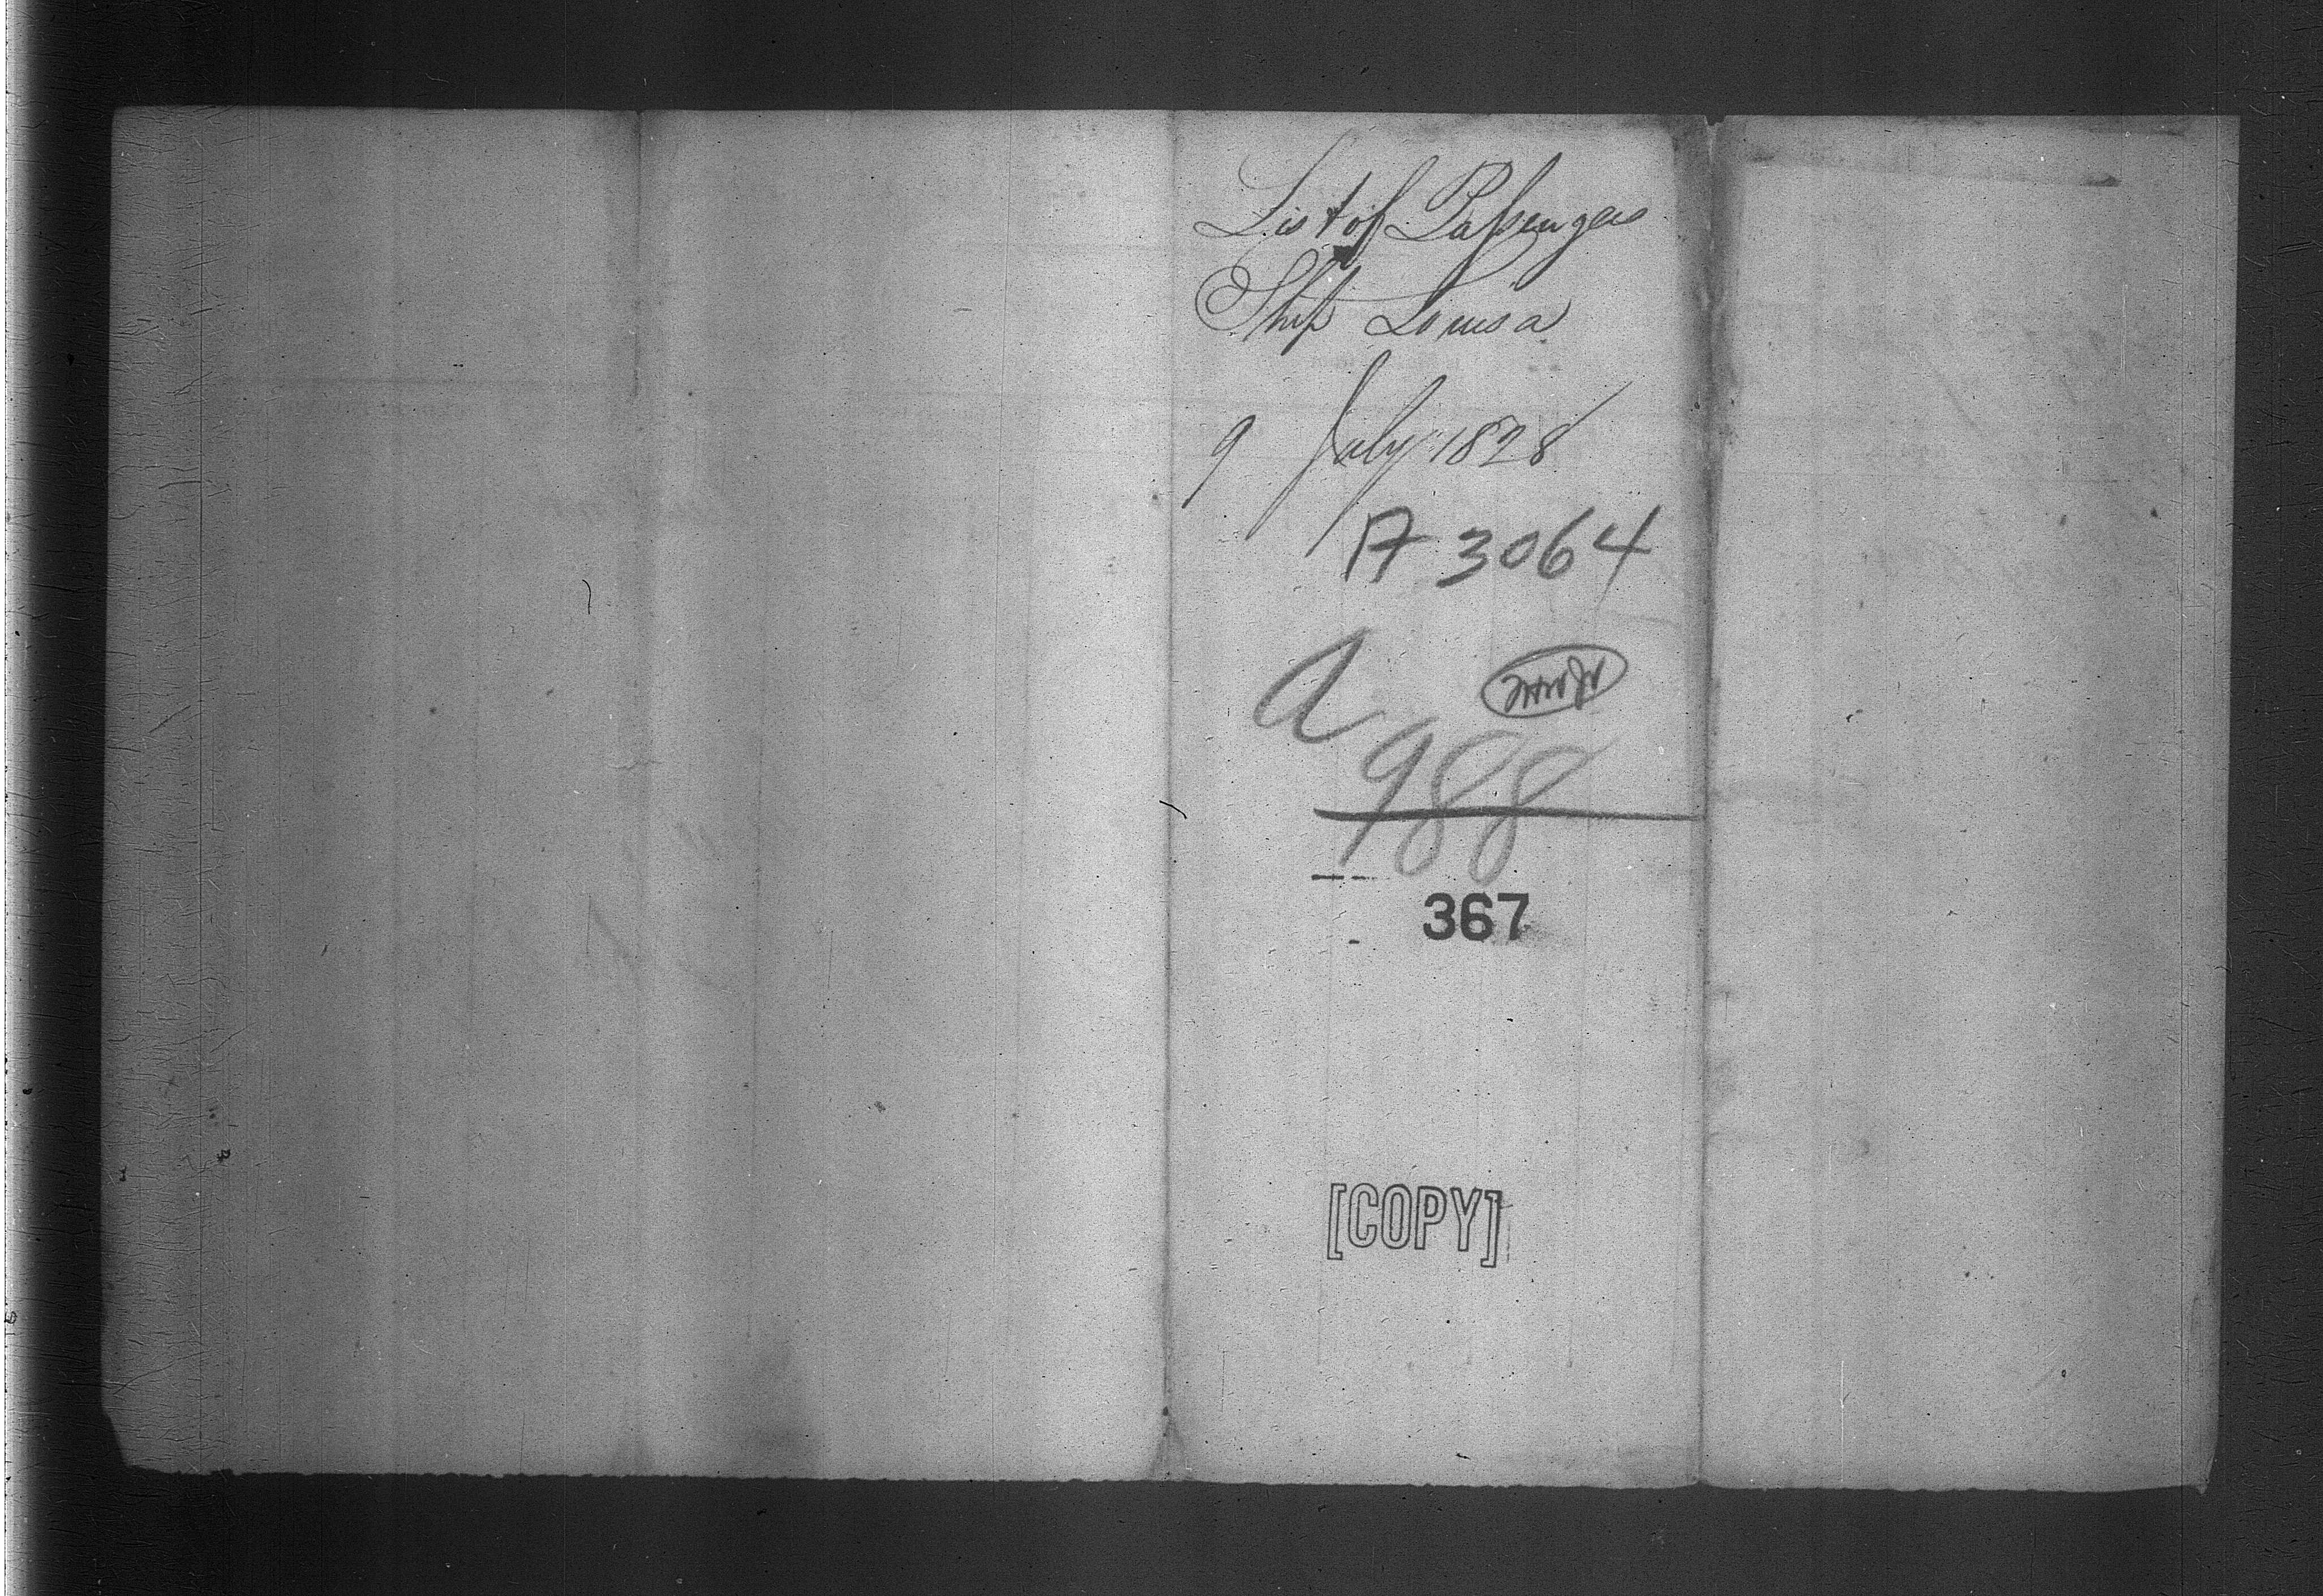 List of Passengers
Ship Louisa
9 July 1828
A 3064
A
988
367
[COPY]